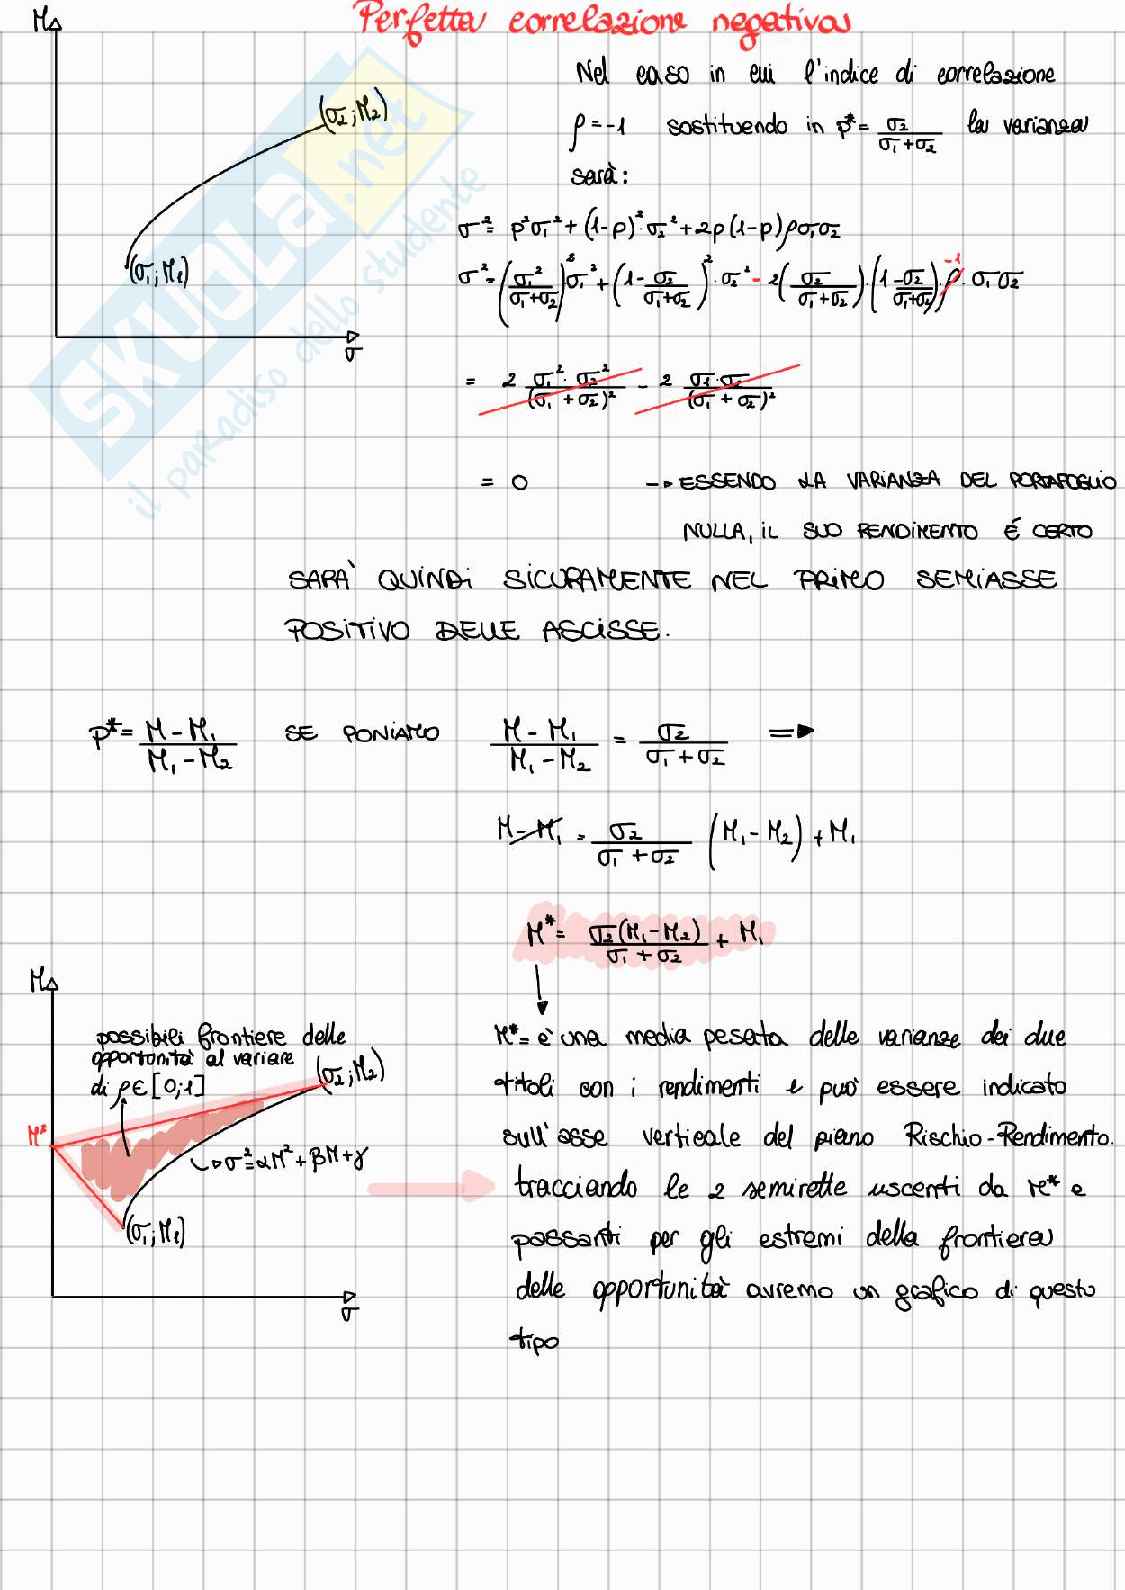 Perfetta correlazione negativa
M
(σ2; M2)
(σ1; M1)
σ
Nel caso in cui l'indice di correlazione
ρ=-1 sostituendo in p* = σ2/(σ1+σ2) la varianza
sarà:
σ² = p²σ1² + (1-p)²·σ2² + 2p(1-p)ρσ1σ2
σ² = (σ1²/(σ1+σ2))²σ1² + (1-σ2/(σ1+σ2))²·σ2² - 2(σ2/(σ1+σ2))·(1-σ2/(σ1+σ2))·ρ·σ1σ2
-1
= 2 σ1²·σ2²/(σ1+σ2)² - 2 σ1·σ2/(σ1+σ2)²
= 0 → ESSENDO LA VARIANZA DEL PORTAFOGLIO
NULLA, IL SUO RENDIMENTO É CERTO
SARA' QUINDI SICURAMENTE NEL PRIMO SEMIASSE
POSITIVO DELLE ASCISSE.
p* = (M-M1)/(M1-M2) SE PONIAMO (M-M1)/(M1-M2) = σ2/(σ1+σ2) ⇒
M-M1 = σ2/(σ1+σ2) (M1-M2) + M1
M* = σ2(M1-M2)/(σ1+σ2) + M1
M
possibili frontiere delle
opportunità al variare
di ρ∈[0;1]
(σ2; M2)
M*
σ²=αM²+βM+γ
(σ1; M1)
σ
M* = è una media pesata delle varianze dei due
titoli con i rendimenti e può essere indicato
sull'asse verticale del piano Rischio-Rendimento.
tracciando le 2 semirette uscenti da M* e
passanti per gli estremi della frontiera
delle opportunità avremo un grafico di questo
tipo
SKUOLA.net
il paradiso dello studente